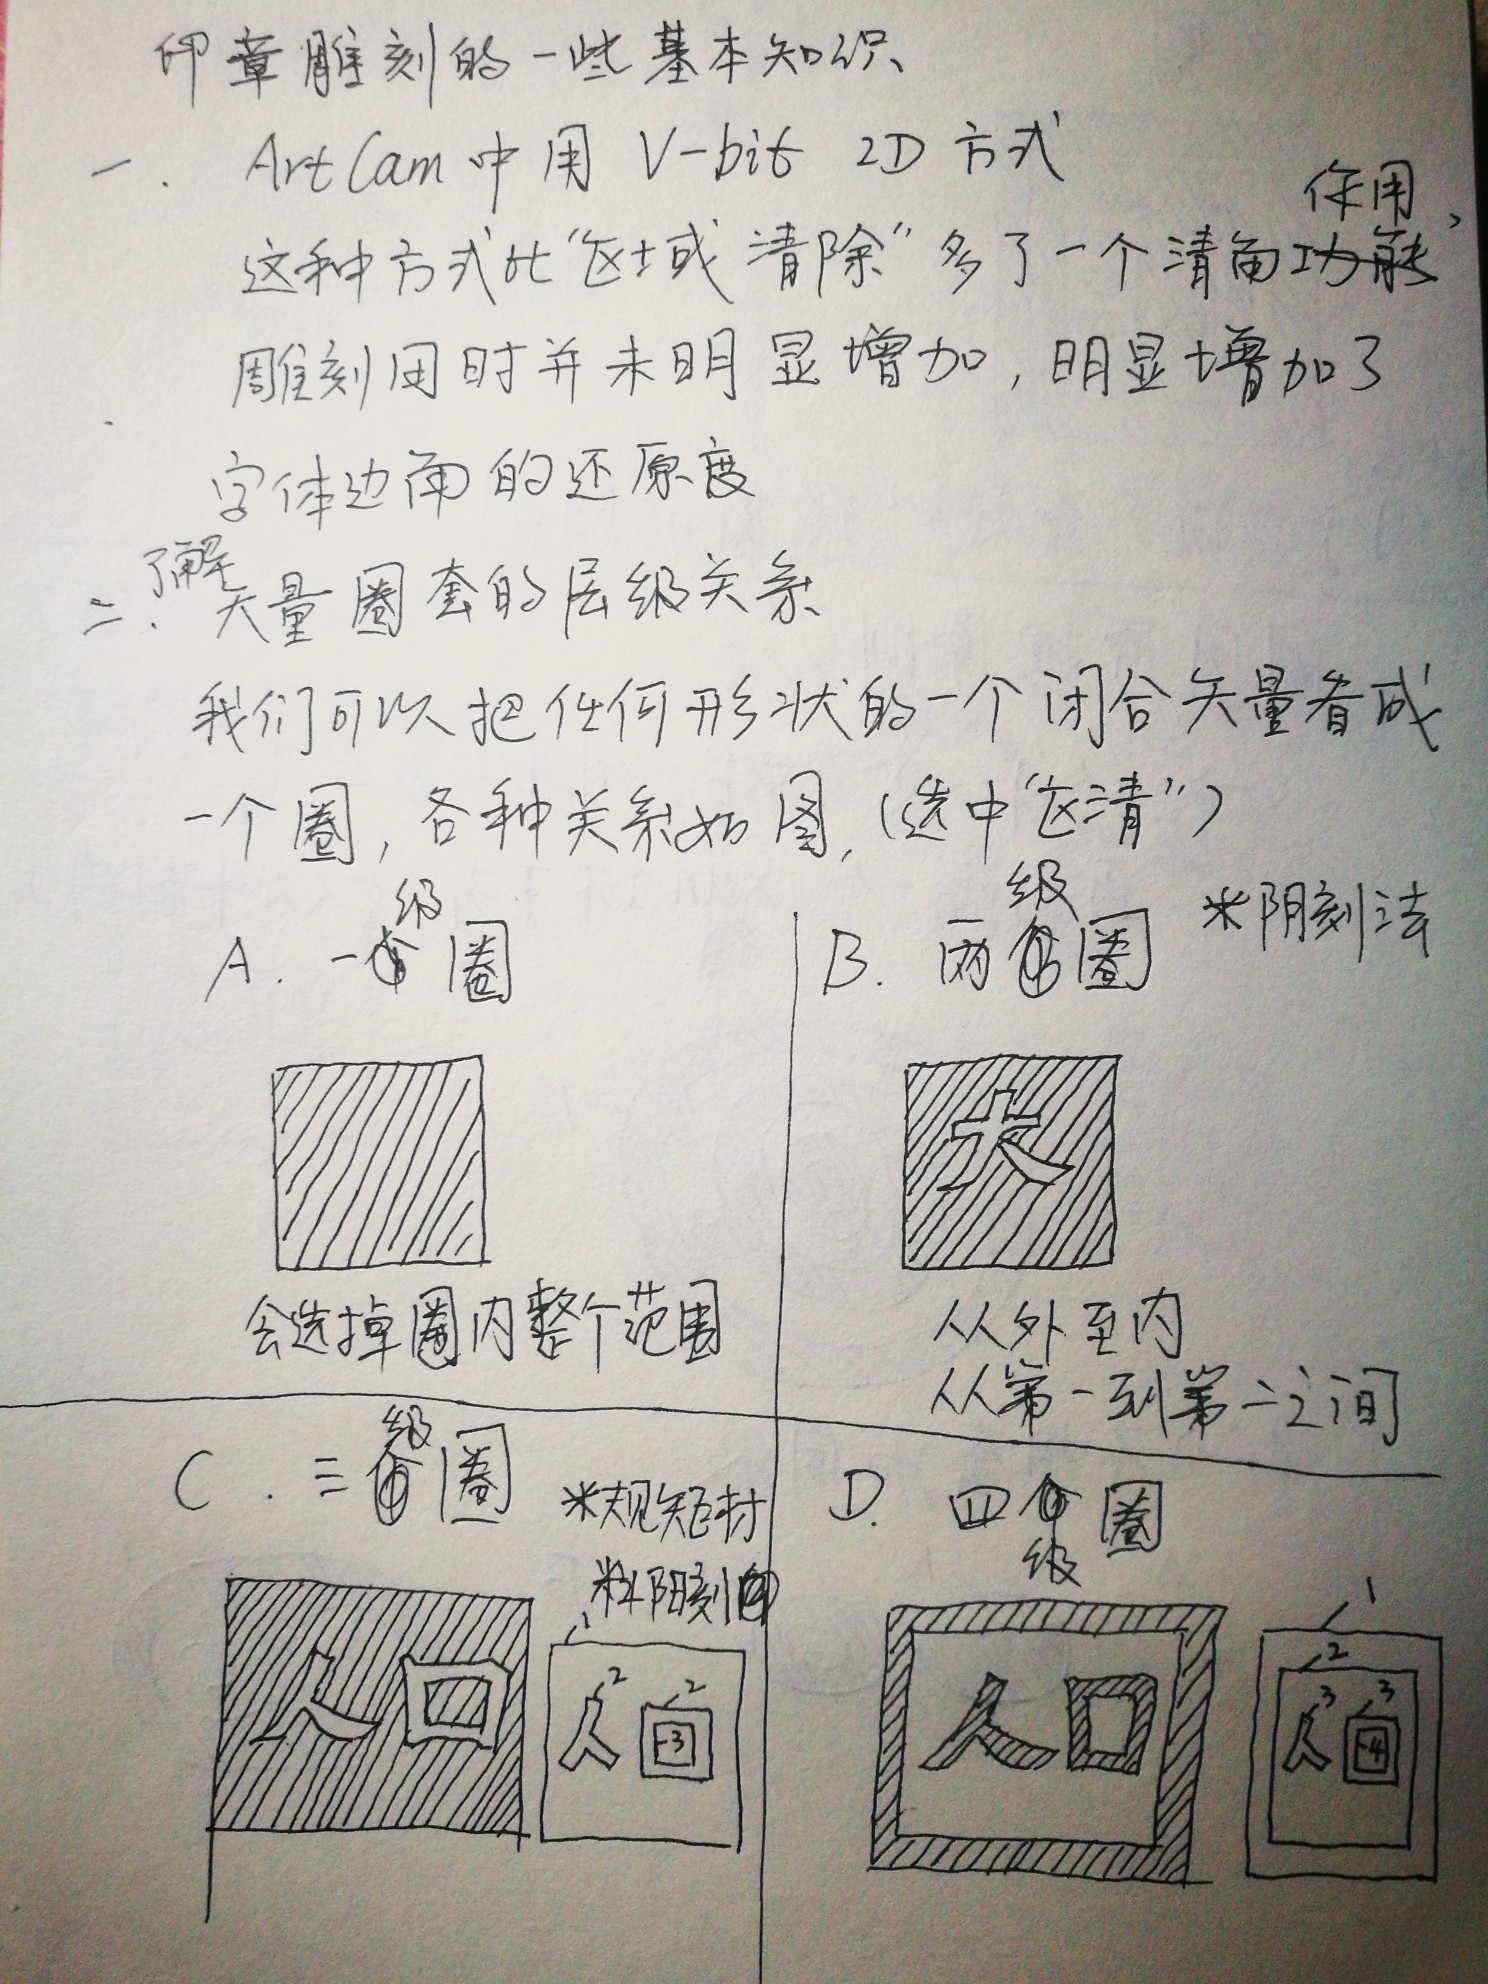 印章雕刻的一些基本知识
一. ArtCam中用 V-bit 2D 方式
这种方式比“区域清除”多了一个清角作用,
雕刻用时并未明显增加,明显增加了
字体边角的还原度
二. 了解矢量圈套的层级关系
我们可以把任何形状的一个闭合矢量看成
一个圈,各种关系如图,(选中“区清”)
A. 一级圈
B. 两级圈 *阴刻法
会选掉圈内整个范围
从外至内
从第一到第二之间
C. 三级圈 *规矩材
料阳刻
人口
1
2 2
人 3
D. 四级圈
人口
1
2
3 3
人 4